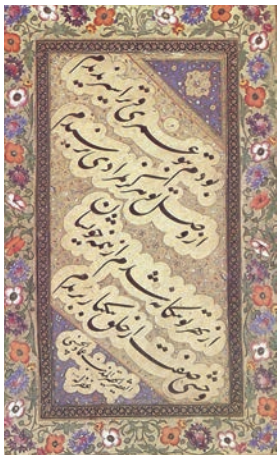 بودم بتو عمری و ترا سیر ندیدم
از وصل تو هرگز بمرادی نرسیدم
از بهر تو بیگانه شدم از همه خویشان
وحشی صفت از خلق بیکبار بریدم